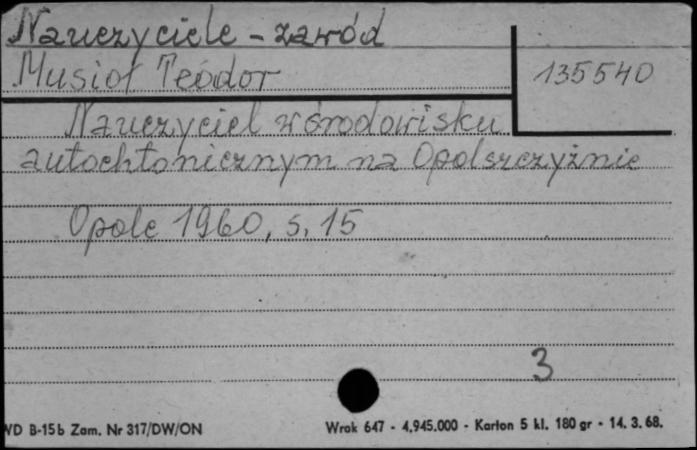 Nauczyciele - zawód
Musioł Teodor
135540
Nauczyciel w środowisku
autochtonicznym na Opolszczyźnie
Opole 1960, s. 15
3
WD B-15b Zam. Nr 317/DW/ON
Wrak 647 - 4.945.000 - Karton 5 kl. 180 gr - 14. 3. 68.